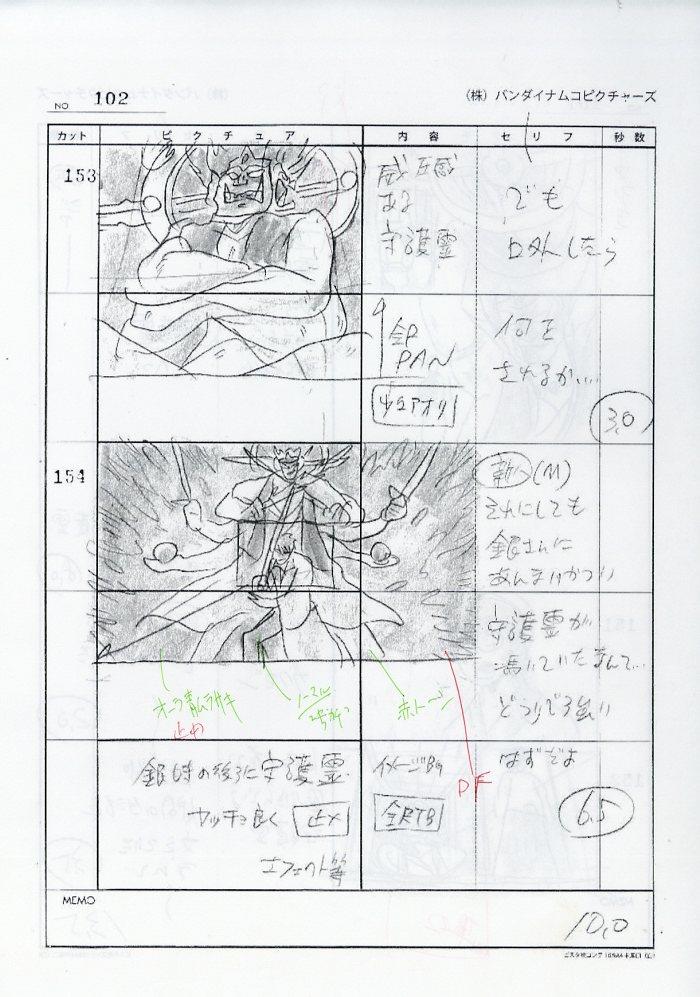 NO 102
(株) バンダイナムコピクチャーズ
カット ピクチュア 内容 セリフ 秒数
153
威圧感
ある
守護霊
でも
口外したら
PAN
何を
されるか…
3,0
154
新八(M)
それにしても
銀さんに
あんなりかつい
守護霊が
憑いていたなんて…
どうりで強い
はずだよ
止め
ノーマル
DF
銀時の後ろに守護霊
カッチョ良く 止メ
エフェクト等
イメージBG
全RTB
6.5
MEMO
10,0